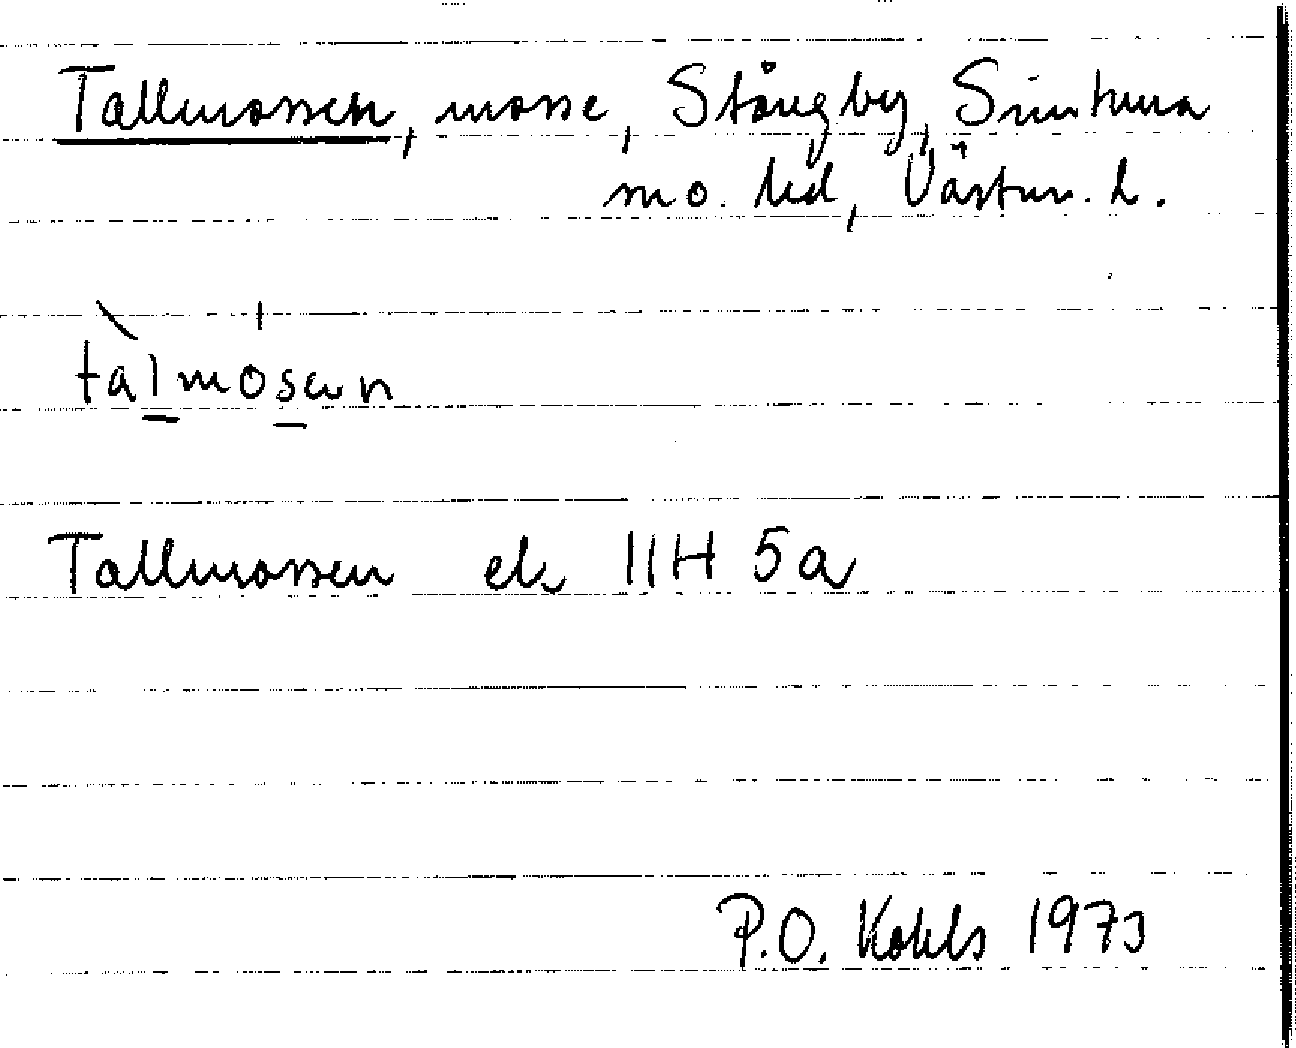 Tallmossen, mosse, Stångby, Simtuna
sn o. hd, Västm. l.
tàlmòsan
Tallmossen ek 11H 5a
P.O. Kohls 1973